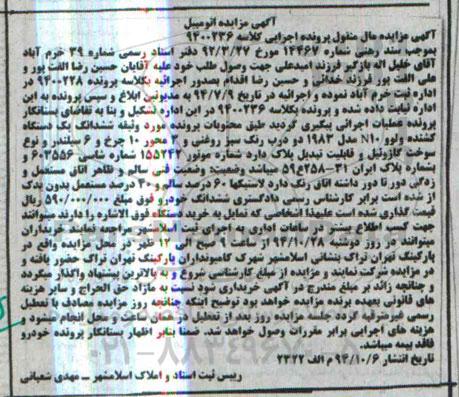 آگهی مزایده اتومبیل
آگهی مزایده مال منقول پرونده اجرایی کلاسه ۹۴۰۰۲۳۶
بموجب سند رهنی شماره ۱۴۴۶۷ مورخ ۹۲/۳/۲۷ دفتر اسناد رسمی شماره ۳۹ خرم آباد
آقای خلیل اله بازگیر فرزند امیدعلی جهت وصول طلب خود علیه آقایان حسین رضا الفت پور و
علی الفت پور فرزند خدائی و حسین رضا اقدام بصدور اجرائیه بکلاسه پرونده ۹۴۰۰۲۲۸ در
اداره ثبت خرم آباد نموده و اجرائیه در تاریخ ۹۴/۷/۹ به مدیونین ابلاغ و سپس پرونده به این
اداره نیابت داده شده و پرونده بکلاسه ۹۴۰۰۲۳۶ در این اداره تشکیل و بنا به تقاضای بستانکار
پرونده عملیات اجرائی پیگیری گردید طبق محتویات پرونده مورد وثیقه ششدانگ یک دستگاه
کشنده ولوو N۱۰ مدل ۱۹۸۳ دو درب رنگ سبز روغنی و ۲ محور ۱۰ چرخ و ۶ سیلندر و نوع
سوخت گازوئیل و قابلیت تبدیل پلاک دارد شماره موتور ۱۵۵۲۴۴ شماره شاسی ۶۰۳۵۵۶ و
بشماره پلاک ایران ۳۱-۲۵۸ع۵۹ میباشد وضعیت: وضعیت فنی سالم و ظاهر اتاق مستعمل و
زدگی دور تا دور داشته اتاق رنگ دارد لاستیکها ۶۰ درصد سالم و ۴۰ درصد مستعمل بدون یدک
از شده است برابر کارشناس رسمی دادگستری ششدانگ خودرو فوق مبلغ ۵۹۰/۰۰۰/۰۰۰ ریال
قیمت گذاری شده است علیهذا اشخاصی که تمایل به خرید دستگاه فوق الاشاره را دارند میتوانند
جهت کسب اطلاع بیشتر در ساعات اداری به اجرای ثبت اسلامشهر مراجعه نمایند خریداران
میتوانند در روز دوشنبه ۹۴/۱۰/۲۸ از ساعت ۹ صبح الی ۱۲ ظهر در محل مزایده واقع در
پارکینگ تهران تراک بنشانی اسلامشهر شهرک کامیونداران پارکینگ تهران تراک حضور یافته و
در مزایده شرکت نمایند و مزایده از مبلغ کارشناسی شروع و به بالاترین پیشنهاد واگذار میگردد
و چنانچه زائد بر مبلغ مندرج در آگهی خریداری شود نسبت به مازاد حق الحراج و سایر هزینه
های قانونی بعهده برنده مزایده خواهد بود توضیح اینکه چنانچه روز مزایده مصادف با تعطیل
رسمی غیرمترقبه گردد جلسه مزایده روز بعد از تعطیل در همان ساعت و محل انجام میشود و
هزینه های اجرایی برابر مقررات وصول خواهد شد. ضمنا بنابر اظهار بستانکار پرونده خودرو
فاقد بیمه میباشد.
تاریخ انتشار ۹۴/۱۰/۶ م الف ۲۳۲۲
رییس ثبت اسناد و املاک اسلامشهر ــ مهدی شعبانی